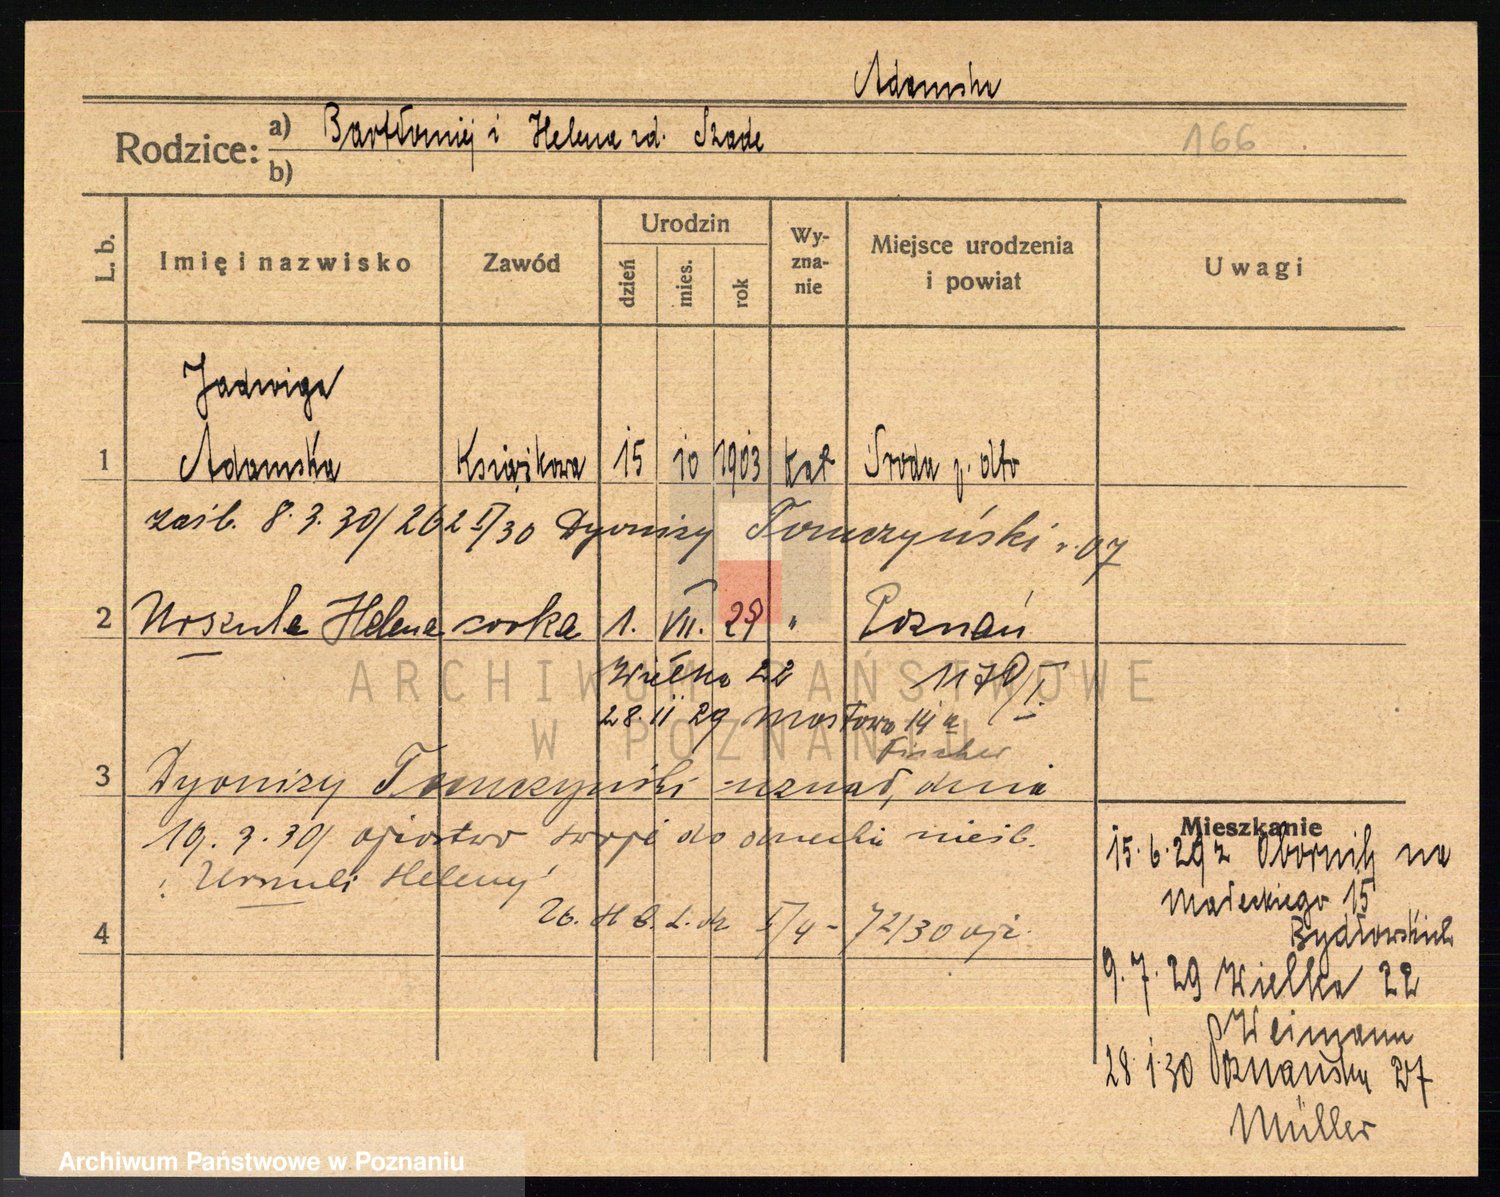 Adamska
Rodzice: a) Bartłomiej i Helena zd. Szade
b)
166
L. b. Imię i nazwisko Zawód Urodzin dzień mies. rok Wy-zna-nie Miejsce urodzenia i powiat Uwagi
Jadwiga
1 Adamska Książkowa 15 10 1903 kat Środa p. dto
zaśb. 8.3.30/262 I/30 Dyonizy Tomczyński r. 07
2 Urszula Helena córka 1. VII. 29 " Poznań
Wielka 22 1179/I.
28.11 29 Mostowa 14a
Fischer
3 Dyonizy Tomczyński uznał, dnia
19.3.30/ ojcostwo swoje do dziecka nieśb.
Urszuli Heleny
4 I/4 - 72/30
Mieszkanie
15.6.29 z Obornik na
Małeckiego 15
9.7.29 Wielka 22
Weimann
28 1 30 Poznańska 27
Müller
ARCHIWUM PAŃSTWOWE
W POZNANIU
Archiwum Państwowe w Poznaniu